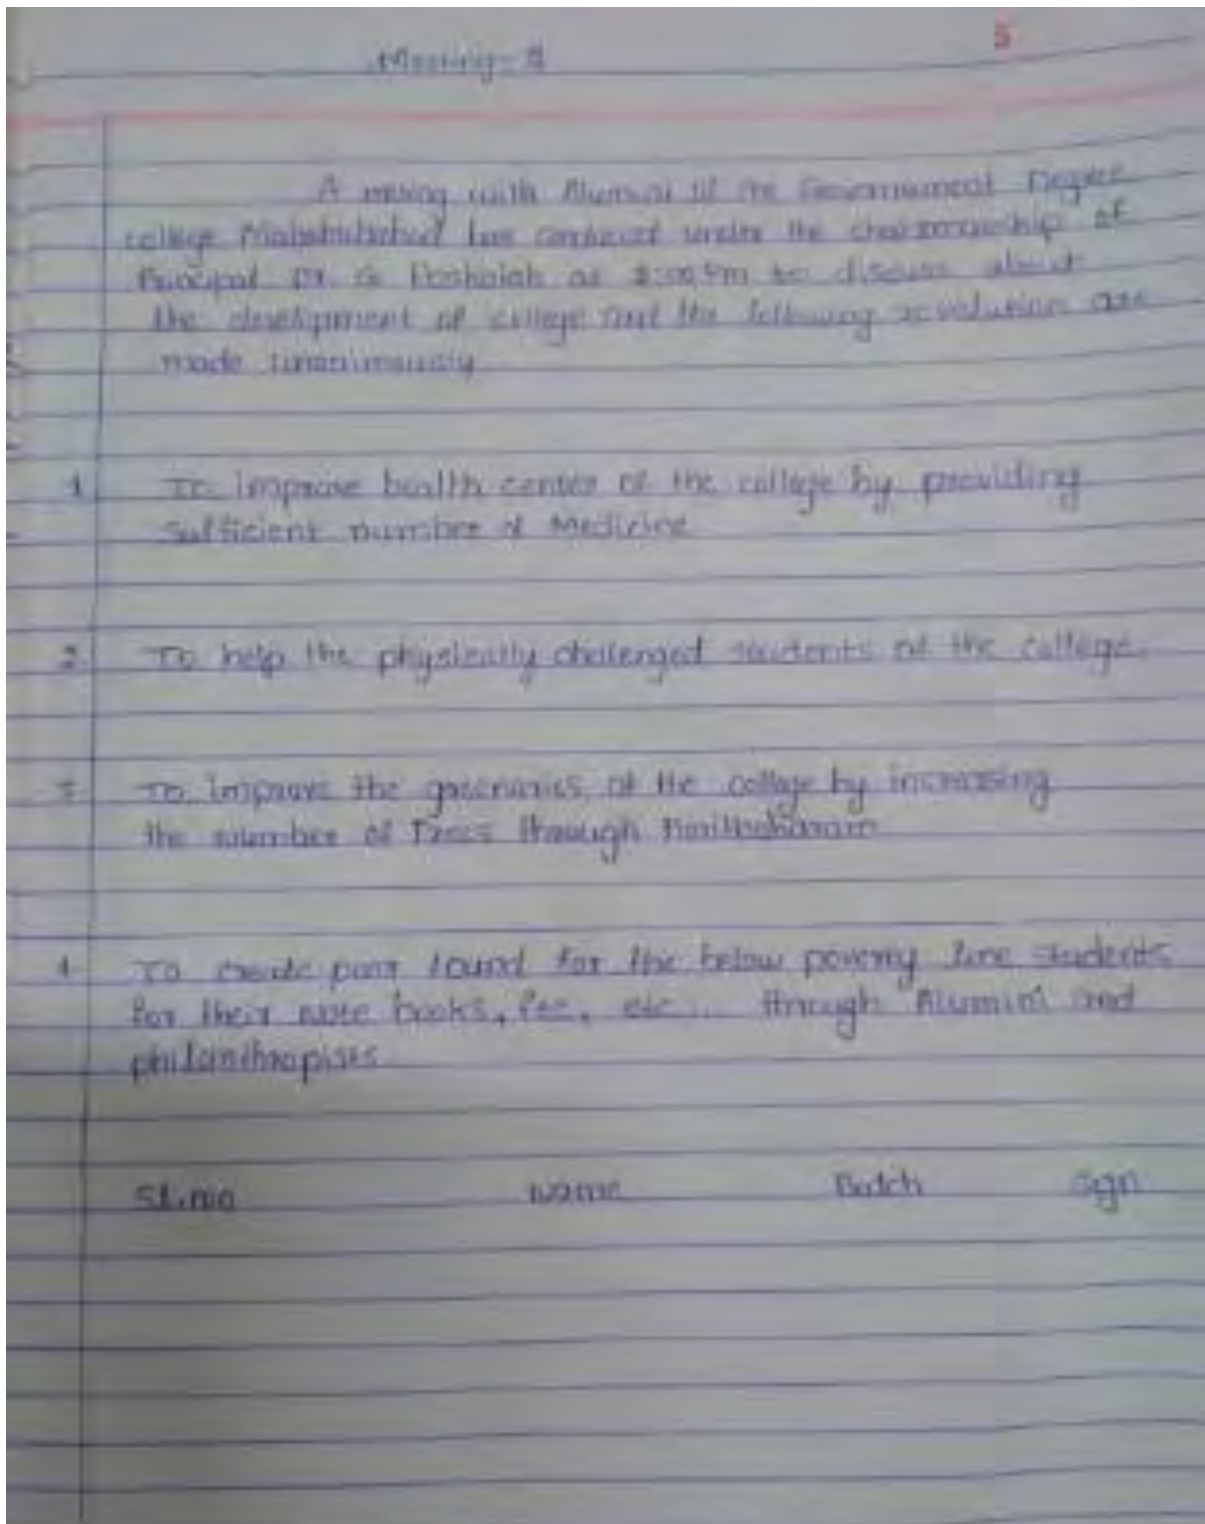 5
Meeting-
A meeing with Alumini of the Governament Degree
college Mahabubabad has conducted under the chairmanship of
Principal Dr. G Poshaiah at :00 Pm to discuss about
the development of college and the following revolution are
made unanimously
1. To improve health center of the college by providing
Sufficient number of Medicine
2. To help the physically challenged students of the college.
3. To improve the greenaries of the college by increasing
the number of Trees through Harithaharam
4. To create poor found for the below poverty line students
for their note books, fee, etc... through Alumini and
philanthropists
Sl.no Name Batch Sign